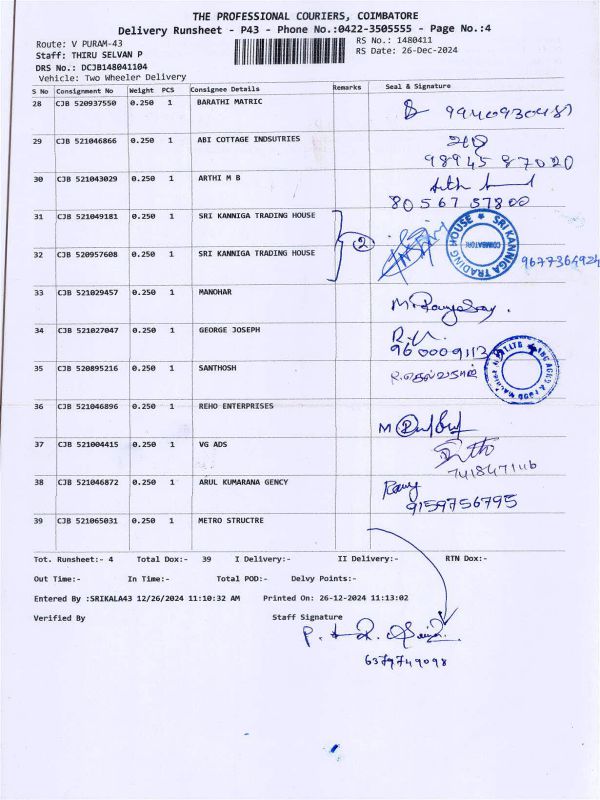 THE PROFESSIONAL COURIERS, COIMBATORE
Delivery Runsheet - P43 - Phone No.:0422-3505555 - Page No.:4
Route: V PURAM-43 RS No.: 1480411
Staff: THIRU SELVAN P RS Date: 26-Dec-2024
DRS No.: DCJB148041104
Vehicle: Two Wheeler Delivery
S No Consignment No Weight PCS Consignee Details Remarks Seal & Signature
28 CJB 520937550 0.250 1 BARATHI MATRIC
29 CJB 521046866 0.250 1 ABI COTTAGE INDSUTRIES
98945 87020
30 CJB 521043029 0.250 1 ARTHI M B
80567 57800
31 CJB 521049181 0.250 1 SRI KANNIGA TRADING HOUSE
2
SRI KANNIGA TRADING HOUSE
COIMBATORE
32 CJB 520957608 0.250 1 SRI KANNIGA TRADING HOUSE
9677364924
33 CJB 521029457 0.250 1 MANOHAR
34 CJB 521027047 0.250 1 GEORGE JOSEPH
960009113
35 CJB 520895216 0.250 1 SANTHOSH
36 CJB 521046896 0.250 1 REHO ENTERPRISES
37 CJB 521004415 0.250 1 VG ADS
38 CJB 521046872 0.250 1 ARUL KUMARANA GENCY
9159756795
39 CJB 521065031 0.250 1 METRO STRUCTRE
Tot. Runsheet:- 4 Total Dox:- 39 I Delivery:- II Delivery:- RTN Dox:-
Out Time:- In Time:- Total POD:- Delvy Points:-
Entered By :SRIKALA43 12/26/2024 11:10:32 AM Printed On: 26-12-2024 11:13:02
Verified By Staff Signature
6379749098